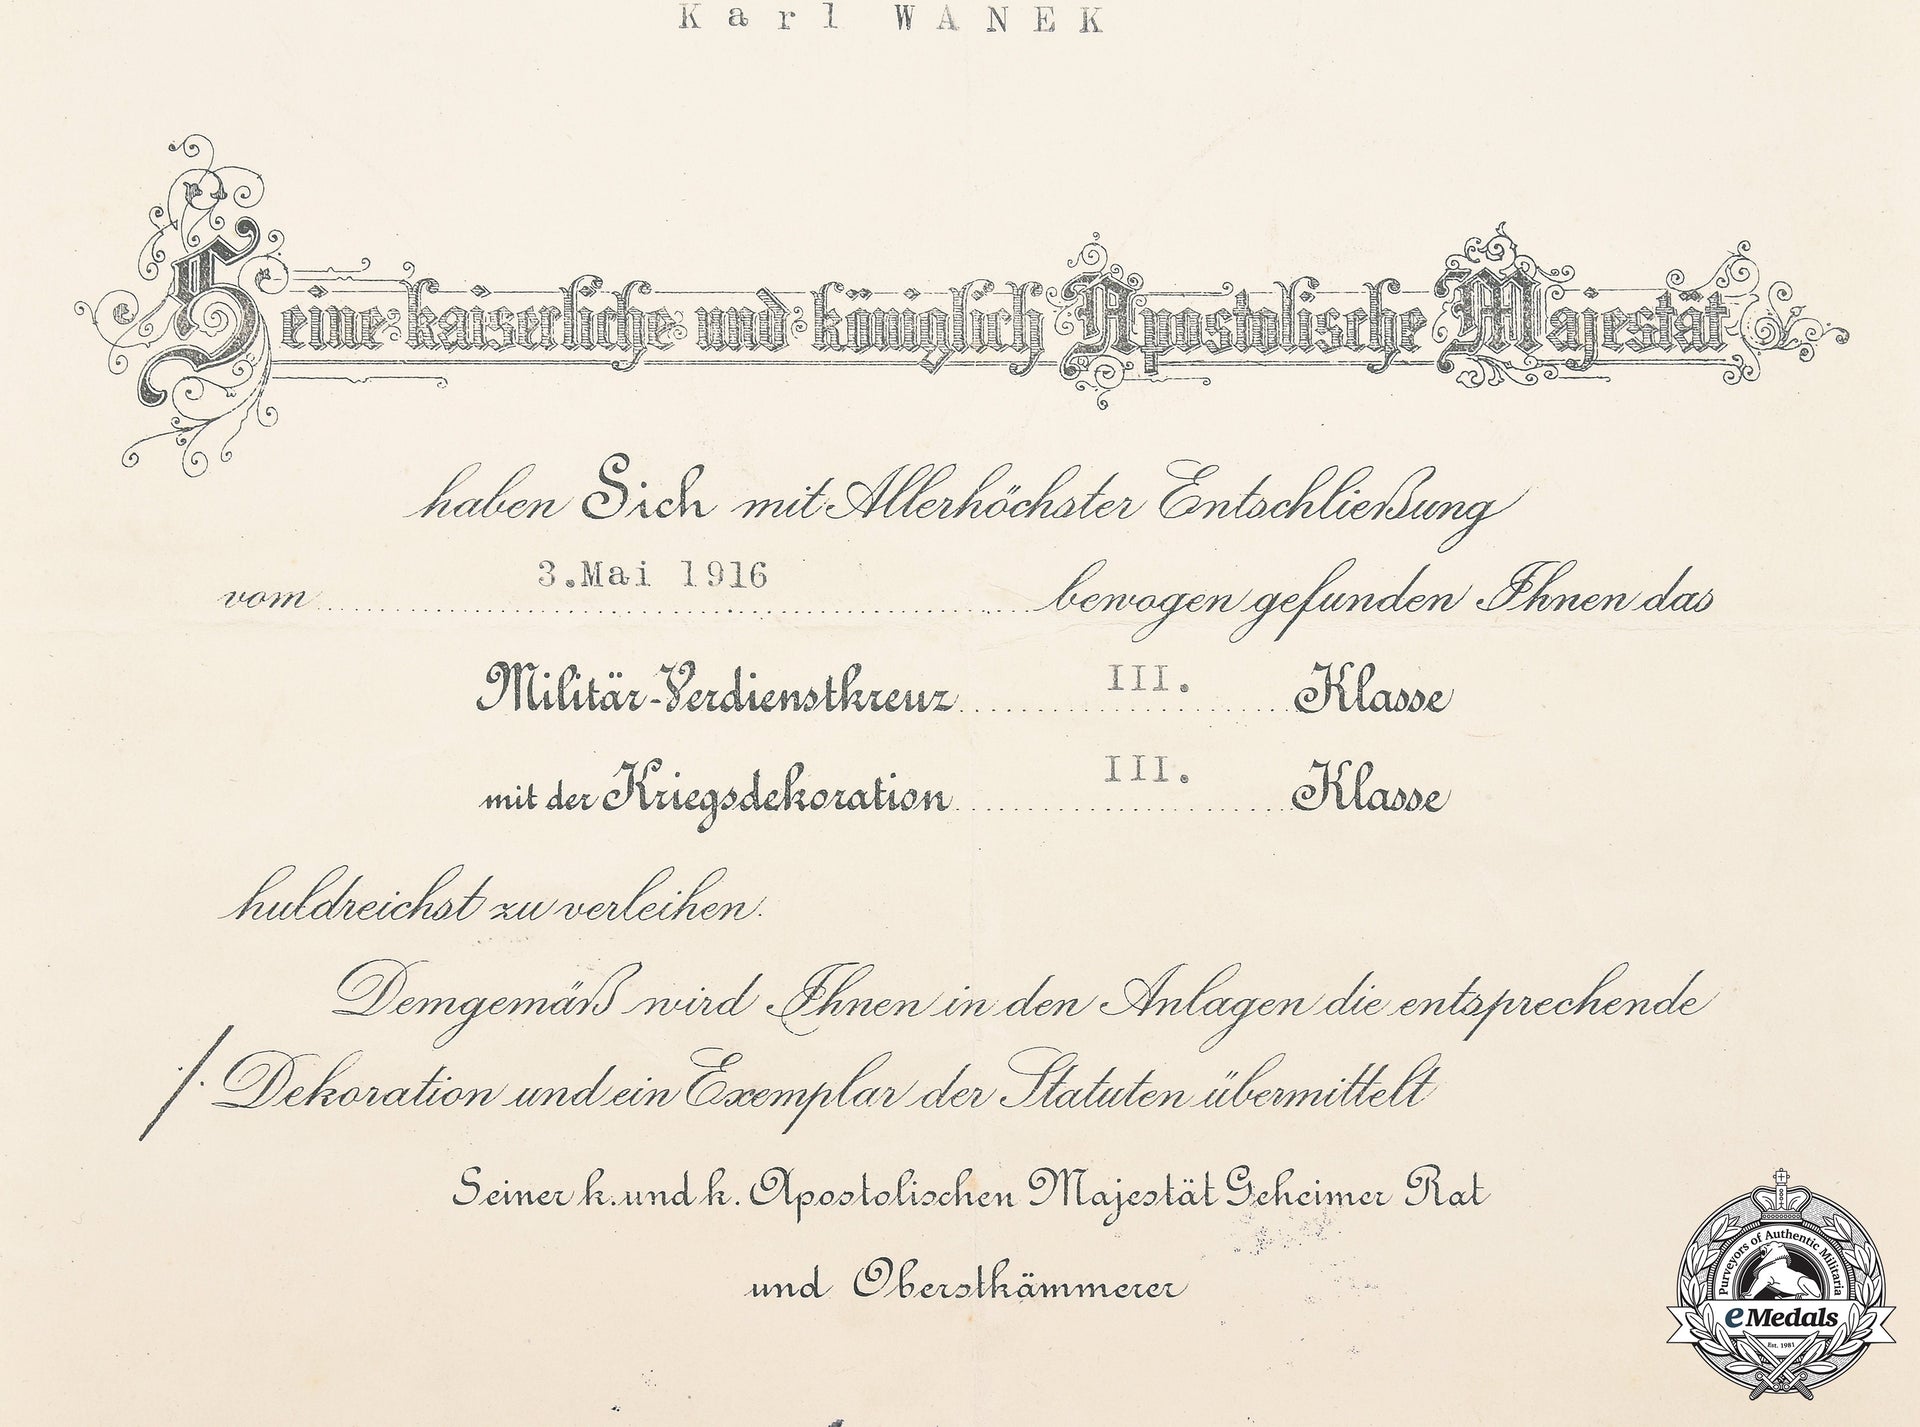 Karl WANEK
Seine kaiserliche und königlich Apostolische Majestät
haben Sich mit Allerhöchster Entschließung
vom 3.Mai 1916 bewogen gefunden Ihnen das
Militär-Verdienstkreuz III. Klasse
mit der Kriegsdekoration III. Klasse
huldreichst zu verleihen.
Demgemäß wird Ihnen in den Anlagen die entsprechende
./. Dekoration und ein Exemplar der Statuten übermittelt
Seiner k. und k. Apostolischen Majestät Geheimer Rat
und Oberstkämmerer
Purveyors of Authentic Militaria
eMedals
Est. 1981